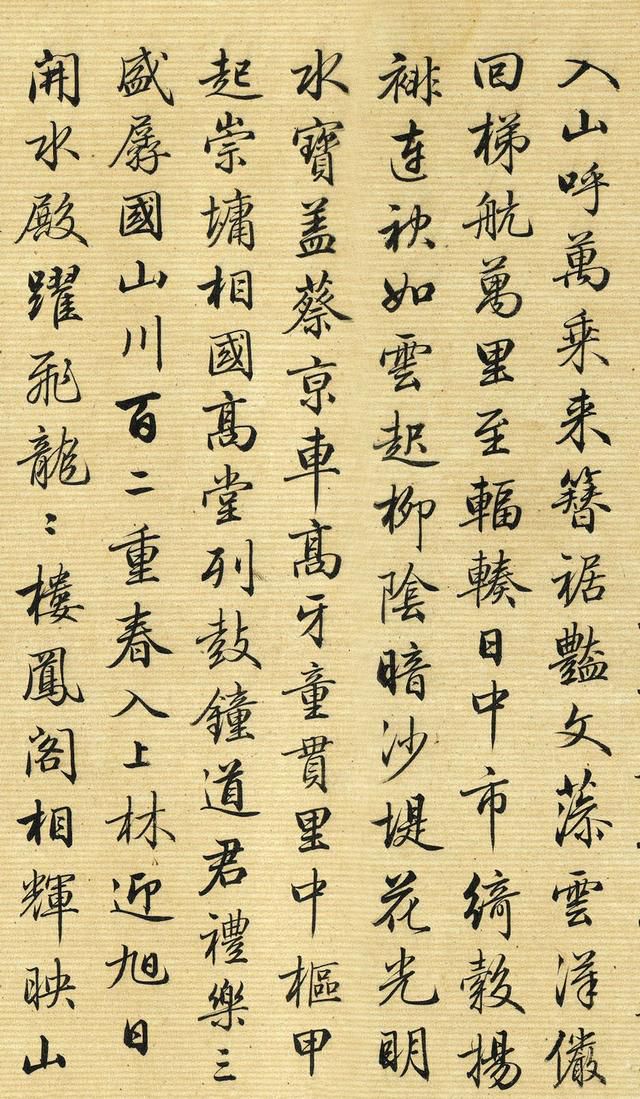 入山呼萬乘来簪裾豔文藻雲漢儼
回梯航萬里至輻輳日中市綺縠揚
裶連袂如雲起柳陰暗沙堤花光明
水寶盖蔡京車高牙童貫里中樞甲
起崇墉相國高堂列鼓鐘道君禮樂三
盛孱國山川百二重春入上林迎旭日
開水殿躍飛龍〻樓鳳阁相輝映山